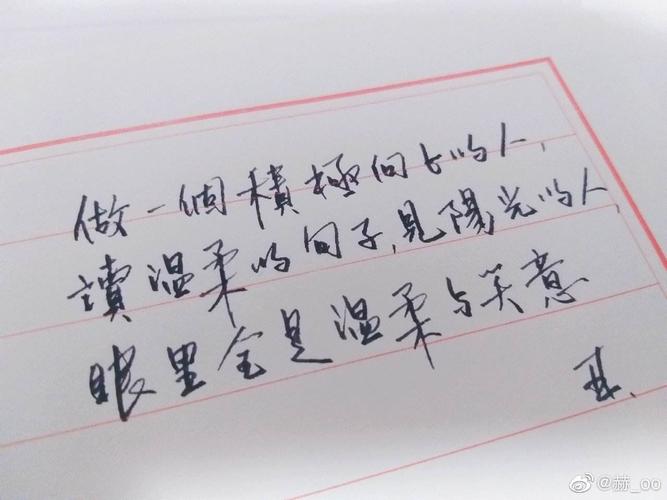 做一個積極向上的人,
讀温柔的句子,見陽光的人
眼里全是温柔与笑意
@赫_oo